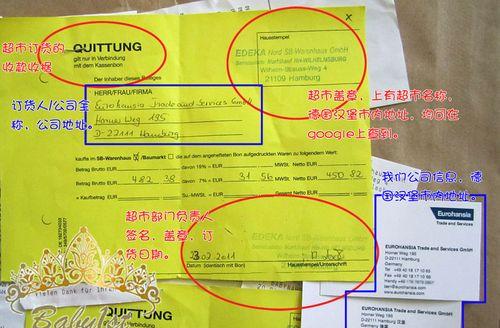 超市订货的
收款收据
QUITTUNG
gilt nur in Verbindung
mit dem Kassenbon
Der Inhaber dieses Beleges
Hausstempel
EDEKA Nord SB-Warenhaus GmbH
Wilhelm-Strauss-Weg 4
21109 Hamburg
超市盖章，上有超市名称，
德国汉堡市内地址，均可在
google上查到。
订货人/公司全
称，公司地址。
HERR/FRAU/FIRMA
Eurohansia Trade and Services GmbH
Horner Weg 195
D-22111 Hamburg
kaufte im SB-Warenhaus
Baumarkt
die auf dem angehefteten Bon aufgedruckten Waren zu folgendem Wert:
Betrag Brutto EUR 482 38 davon 7% = EUR 31 56 MwSt. Netto EUR 450 82
Betrag Brutto EUR
MwSt. Netto EUR
= Kaufbetrag EUR
Su.-MWSt. = EUR
Gesamt Netto EUR
我们公司信息，德
国汉堡市内地址。
超市部门负责人
签名，盖章，订
货日期。
EDEKA Nord SB-Warenhaus GmbH
02.2011
Datum (identisch mit Bon)
Hausstempel/Unterschrift
Eurohansia
Trade and Services
EUROHANSIA Trade and Services GmbH
Horner Weg 195
D-22111 Hamburg
Germany
Eurohansia
Trade and Services
EUROHANSIA Trade and Services GmbH
Horner Weg 195
D-22111 Hamburg
Germany
Vielen Dank für Ihren
Baby